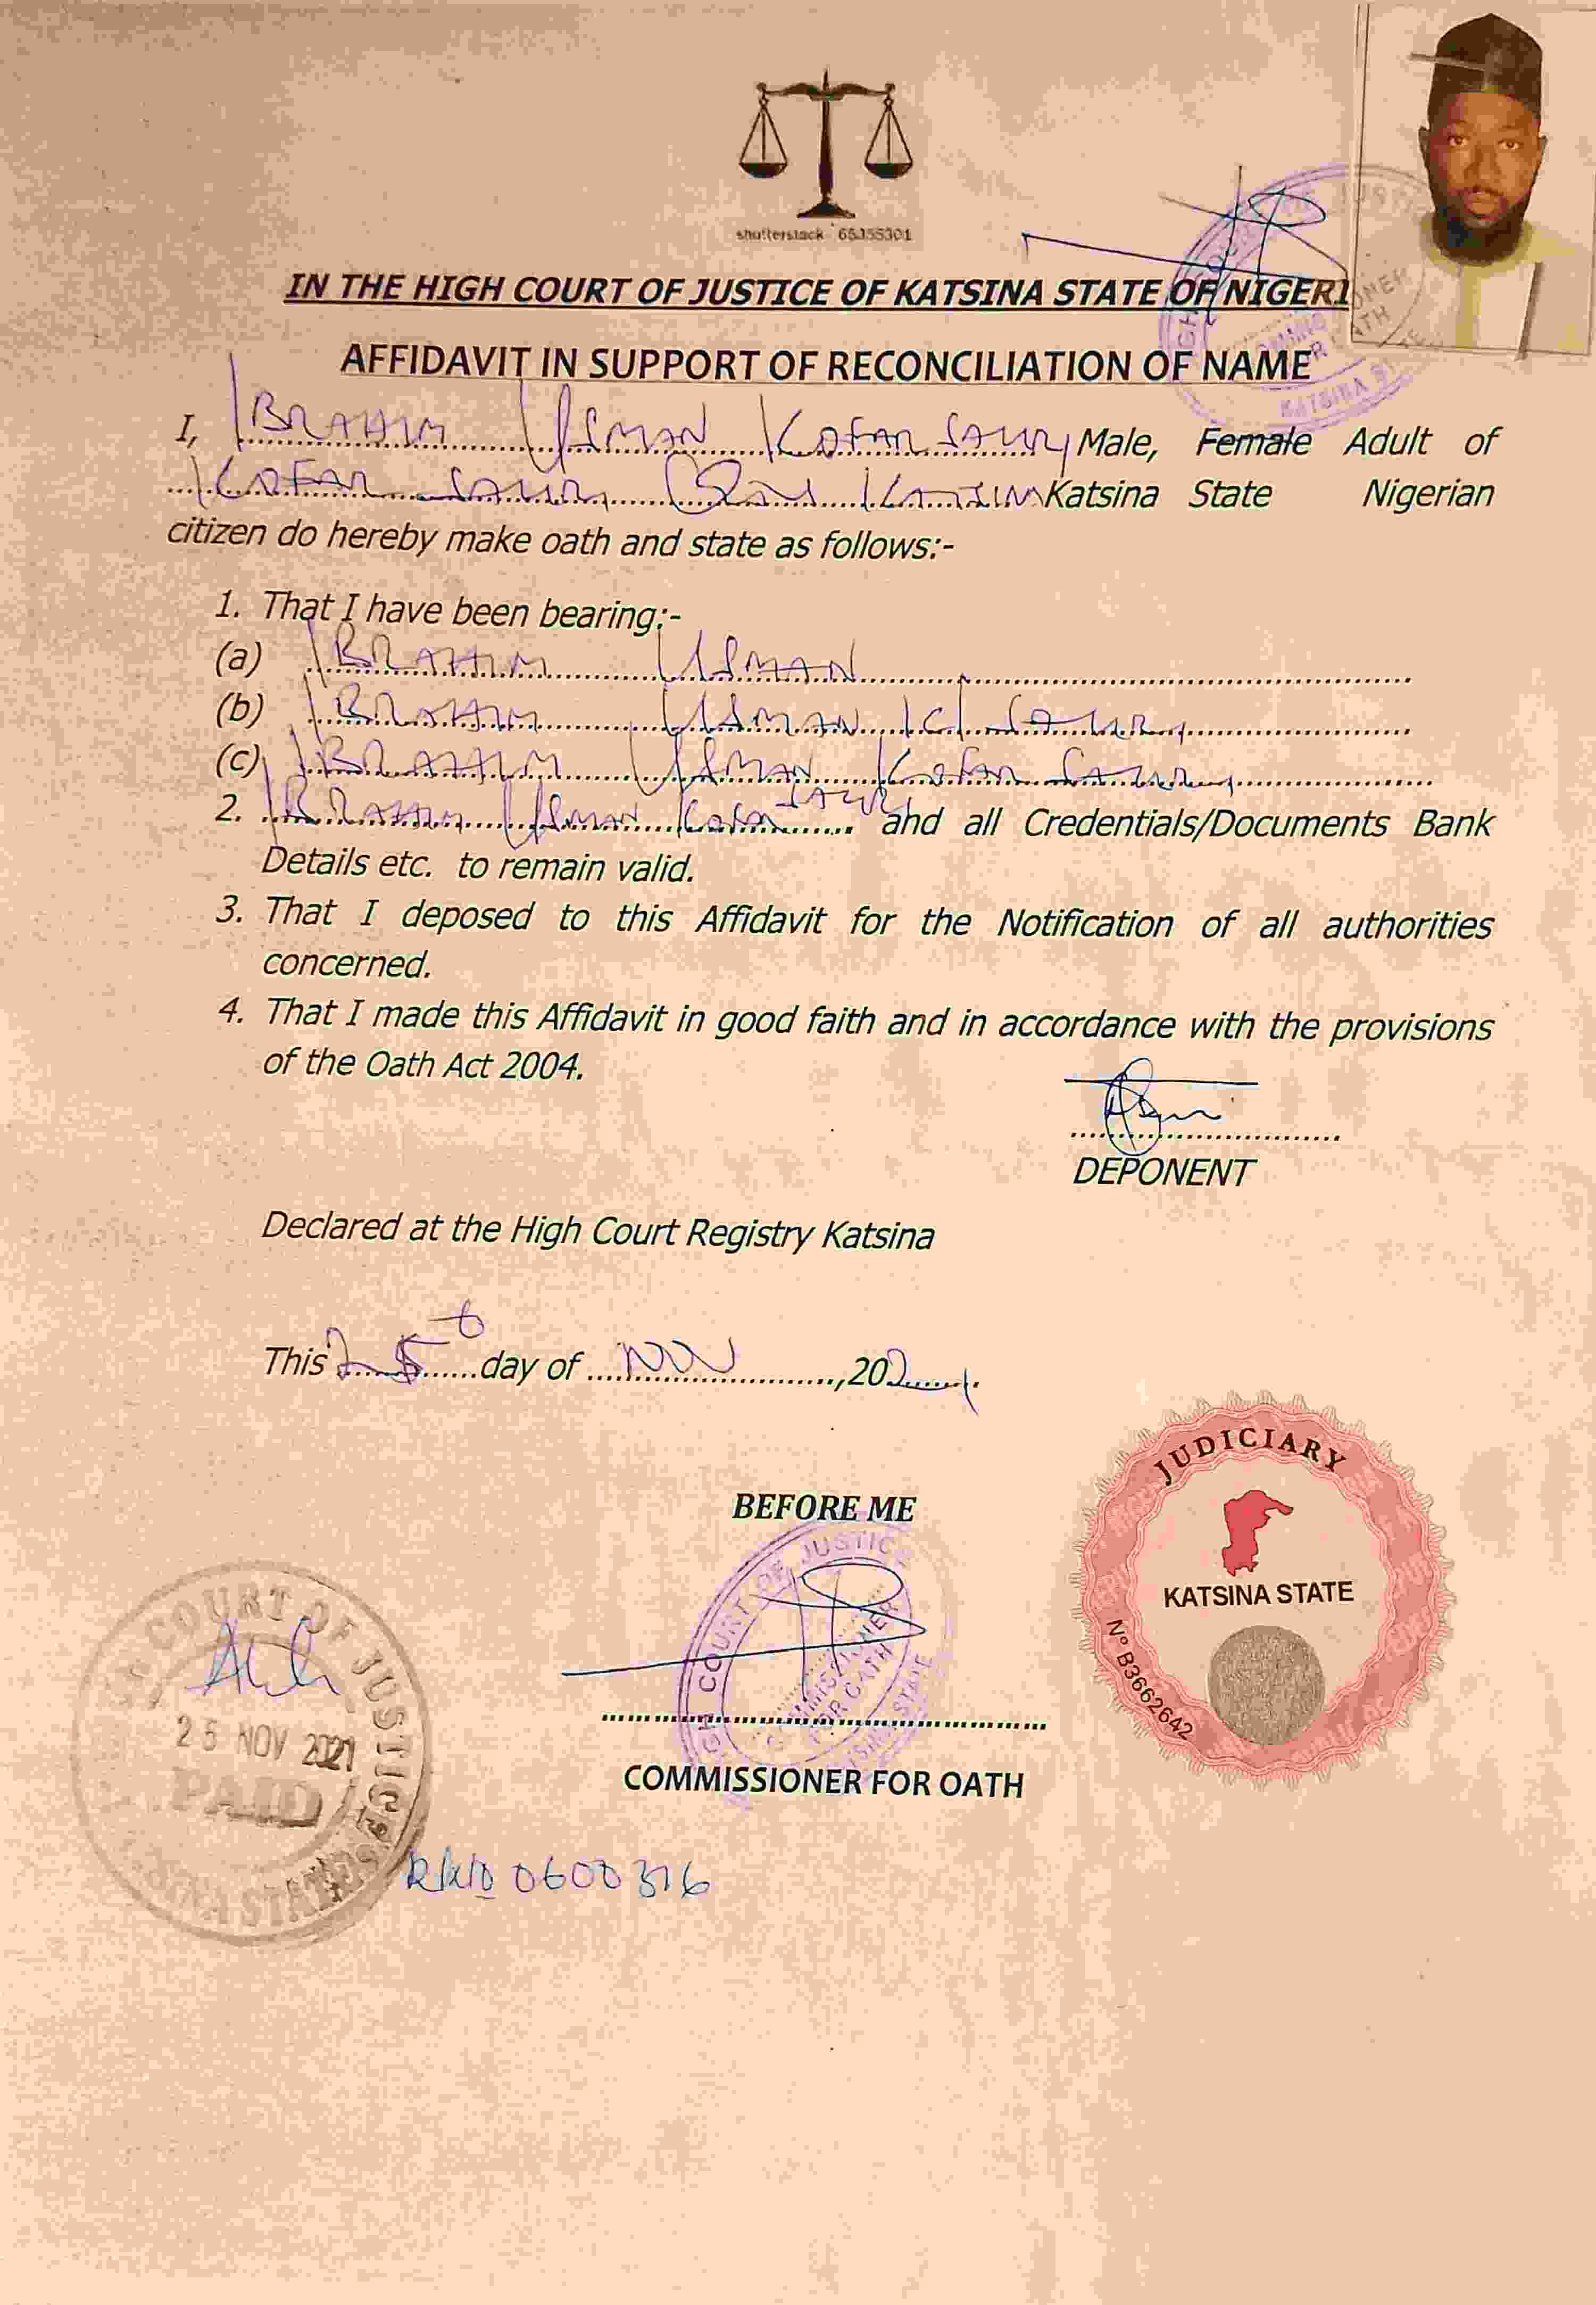 shutterstack 65355301
IN THE HIGH COURT OF JUSTICE OF KATSINA STATE OF NIGERI
AFFIDAVIT IN SUPPORT OF RECONCILIATION OF NAME
I, IBRAHIM USMAN KOFAR SAURI Male, Female Adult of
KOFAR SAURI Katsina State Nigerian
citizen do hereby make oath and state as follows:-
1. That I have been bearing:-
(a) IBRAHIM USMAN
(b) IBRAHIM USMAN K/SAURI
(c) IBRAHIM USMAN KOFAR SAURI
2. IBRAHIM USMAN KOFAR SAURI and all Credentials/Documents Bank
Details etc. to remain valid.
3. That I deposed to this Affidavit for the Notification of all authorities
concerned.
4. That I made this Affidavit in good faith and in accordance with the provisions
of the Oath Act 2004.
DEPONENT
Declared at the High Court Registry Katsina
This 25th day of NOV, 2021.
BEFORE ME
HIGH COURT OF JUSTICE
COMMISSIONER
FOR OATH
KATSINA STATE
COMMISSIONER FOR OATH
JUDICIARY
KATSINA STATE
Nº B3662642
COURT OF JUSTICE
25 NOV 2021
PAID
0600316